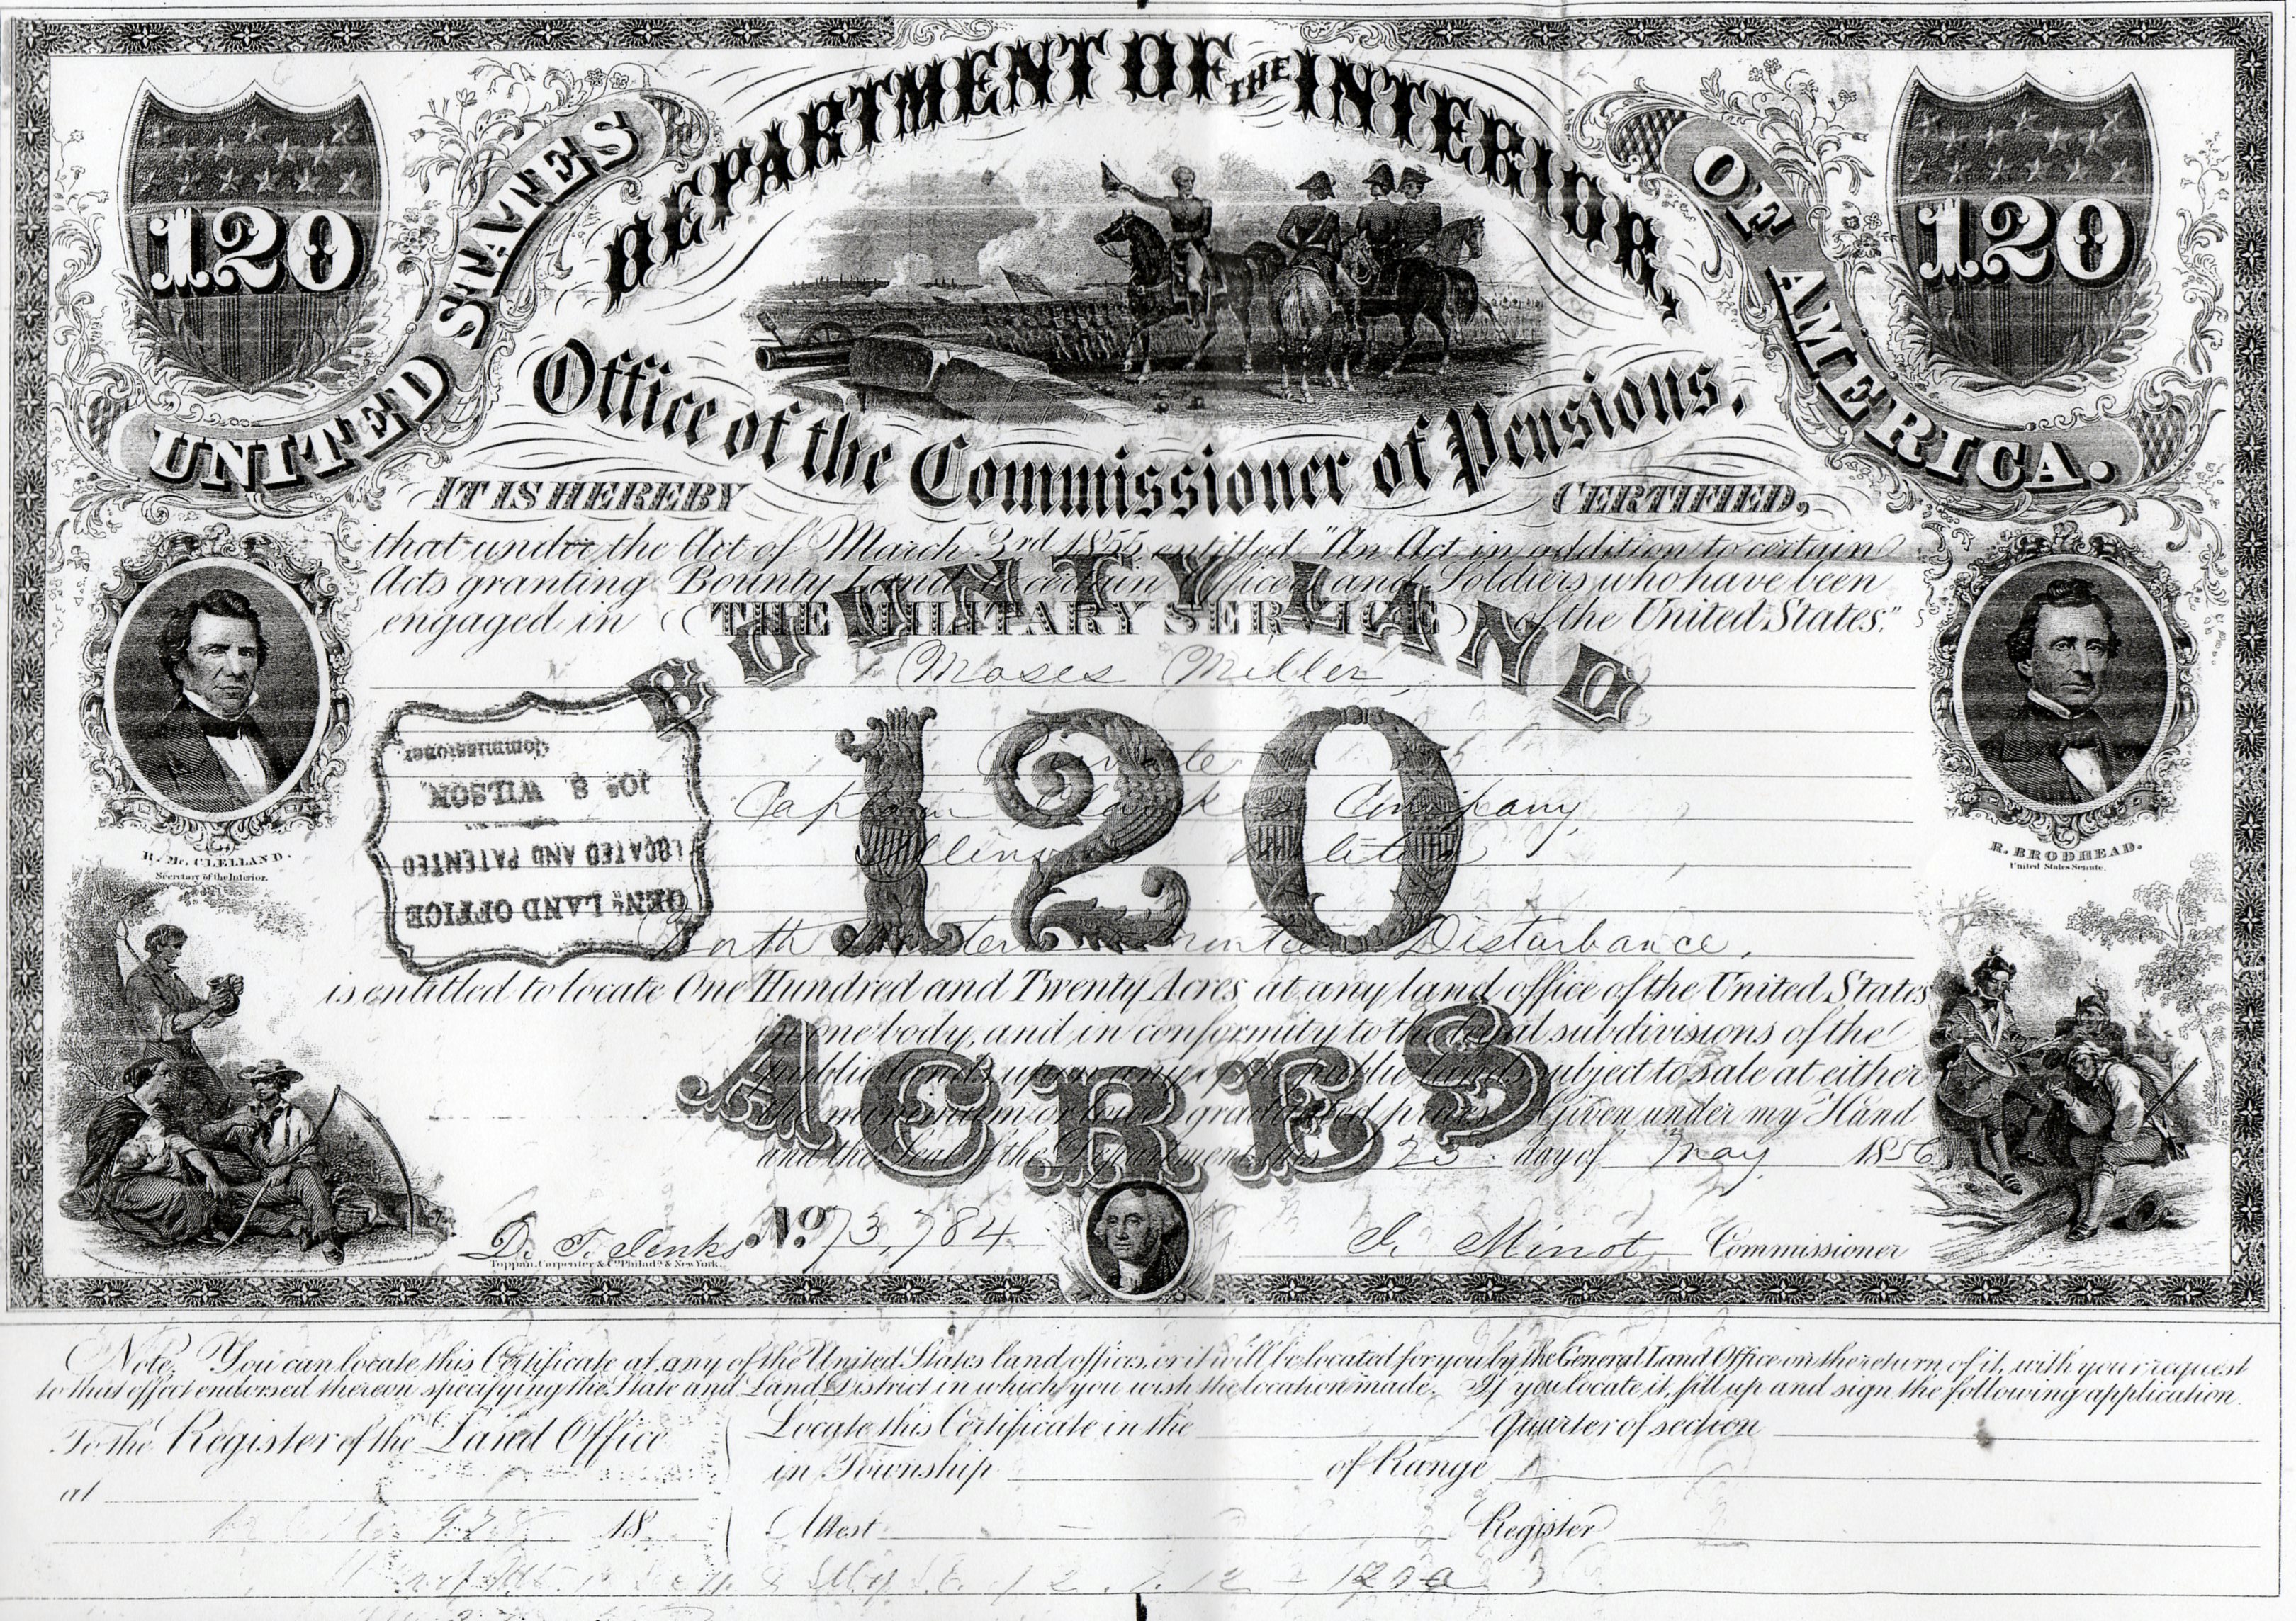 120
UNITED STATES
DEPARTMENT OF THE INTERIOR,
OF AMERICA.
120
Office of the Commissioner of Pensions,
IT IS HEREBY CERTIFIED,
that under the Act of March 3rd 1855 entitled "An Act in addition to certain
Acts granting Bounty Land to certain Officers and Soldiers who have been
engaged in (THE MILITARY SERVICE) of the United States."
BOUNTY LAND
Moses Miller,
120
Private
Captain Clark's Company,
Illinois Militia
North Western Frontier Disturbance,
GENL LAND OFFICE
LOCATED AND PATENTED
JOS S. WILSON
Commissioner
R. Mc. CLELLAND.
Secretary of the Interior.
R. BRODHEAD.
United States Senate.
is entitled to locate One Hundred and Twenty Acres, at any land office of the United States
in one body, and in conformity to the legal subdivisions of the
public lands upon any of the public lands subject to sale at either
the minimum or lower graduated prices. Given under my Hand
and the Seal of the Department this 23 day of May 1856
ACRES
No 73,784
D. T. Jenks
J. Minot, Commissioner
Toppan, Carpenter & Co. Philada. & New York.
Note, You can locate this Certificate at any of the United States land offices, or it will be located for you by the General Land Office on the return of it, with your request
to that effect endorsed thereon specifying the State and Land District in which you wish the location made. If you locate it, fill up and sign the following application
To the Register of the Land Office
at
18
Locate this Certificate in the Quarter of section
in Township of Range
Attest Register